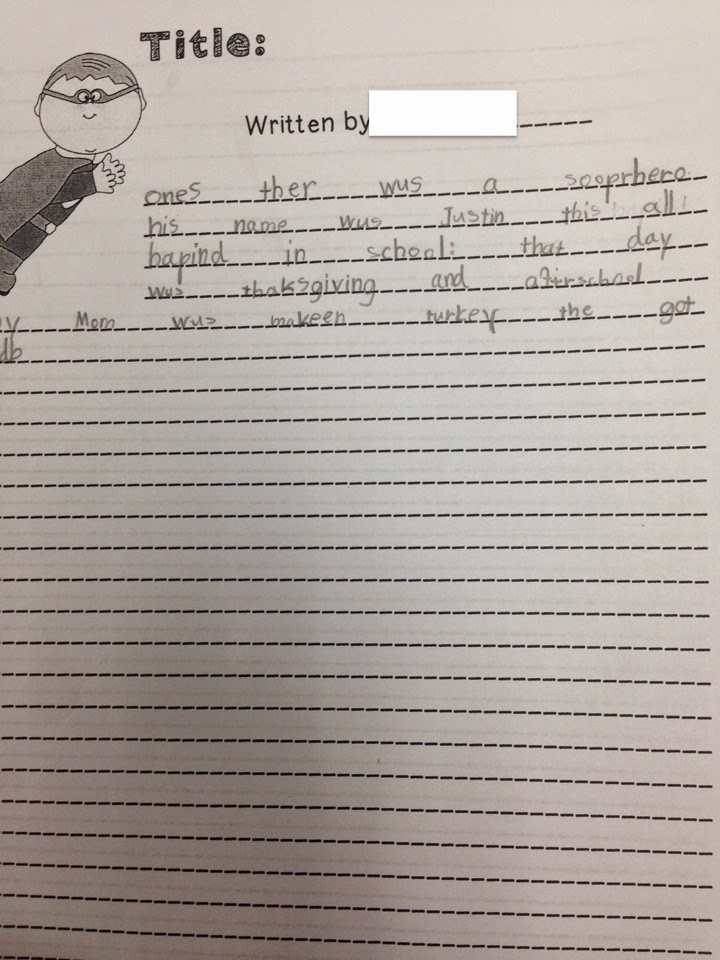 Title:
Written by
ones ther wus a sooprhero
his name wus Justin this all
hapind in school: that day
wus thaksgiving and aftrschool
Mom wus makeen turkey the got